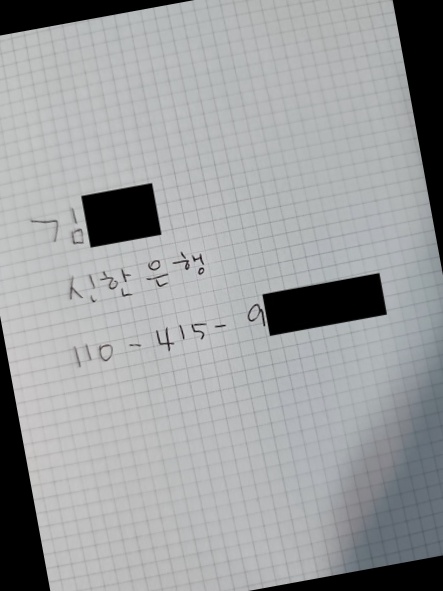 김
신한은행
110-415-9